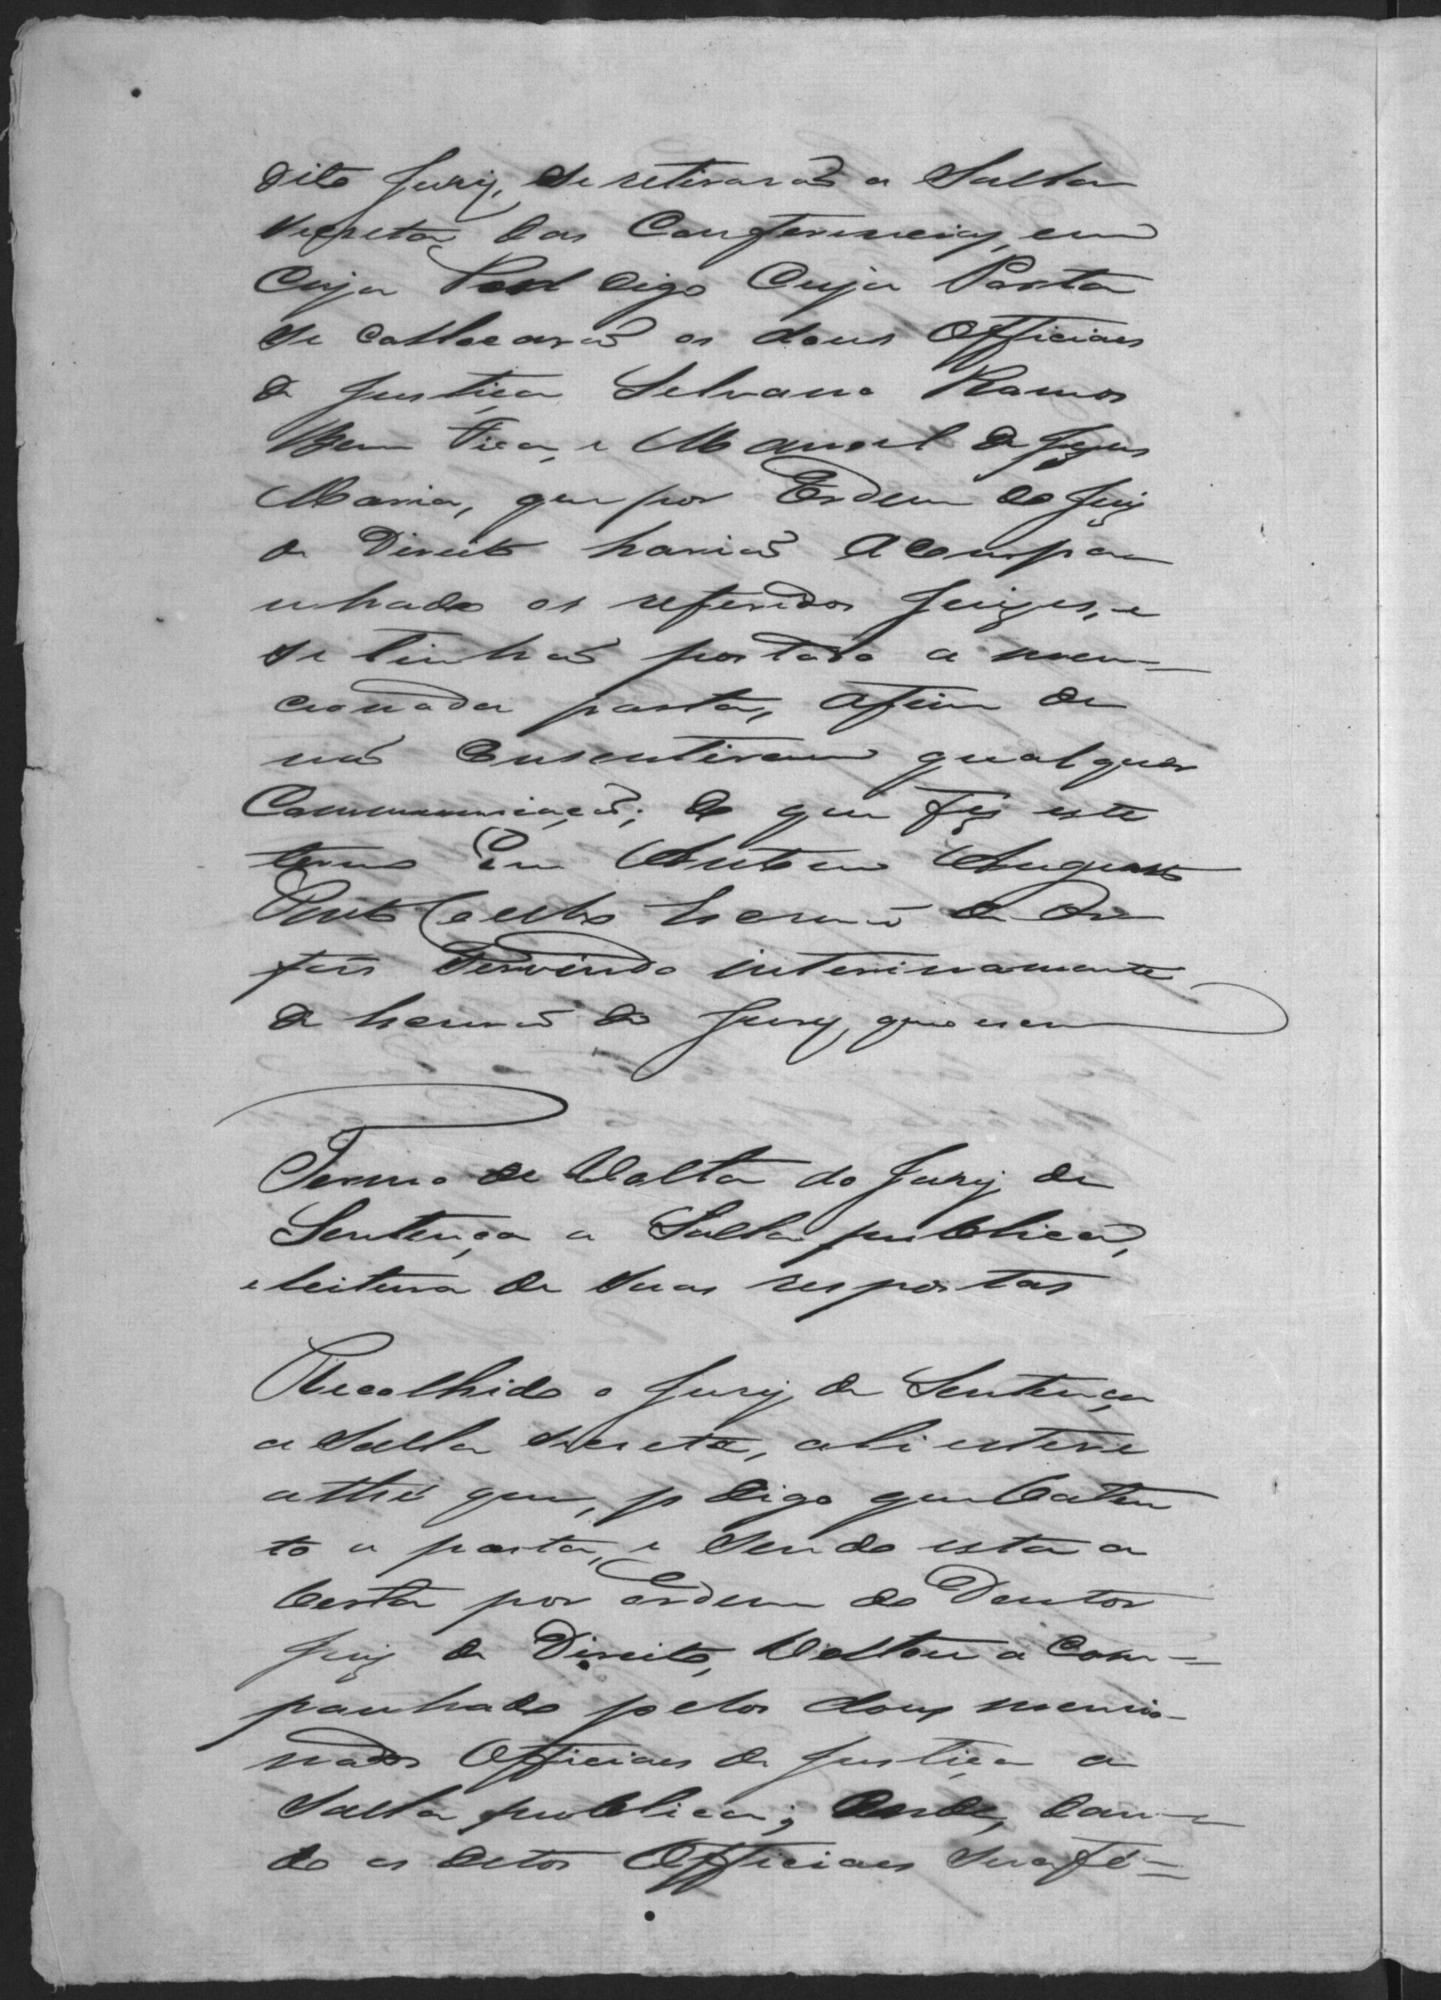 dito Jury, se retirarão a Salla
secreta das Conferencias, em
Cuja Port digo Cuja Porta
se collocarão os dous Officiaes
de Justiça Selvano Ramos
Bem Fica, e Manoel de Jesus
Maria, que por Ordem do Juiz
de Direito havião acompa
nhado os referidos Juizes, e
se tinhão postado a men=
cionada porta, afim de
não consentirem qualquer
Communicação; do que fiz este
termo Eu Antero Augusto
Pinto Coelho Escrivão de Or
fãos servindo interinamente
de Escrivão do Jury, que escrevi
Termo de Volta do Jury de
Sentença a Salla publica,
e leitura de suas respostas
Recolhido o Jury de Sentença
a Salla secreta, ali esteve
athé que, p digo que bateu
to a porta, e sendo esta a
berta por ordem do Doutor
Juiz de Direito, Voltou a com=
panhado pelos dous mencio-
nados Officiaes de Justiça a
Salla publica; dando, dan-
do os ditos Officiaes sua fé=